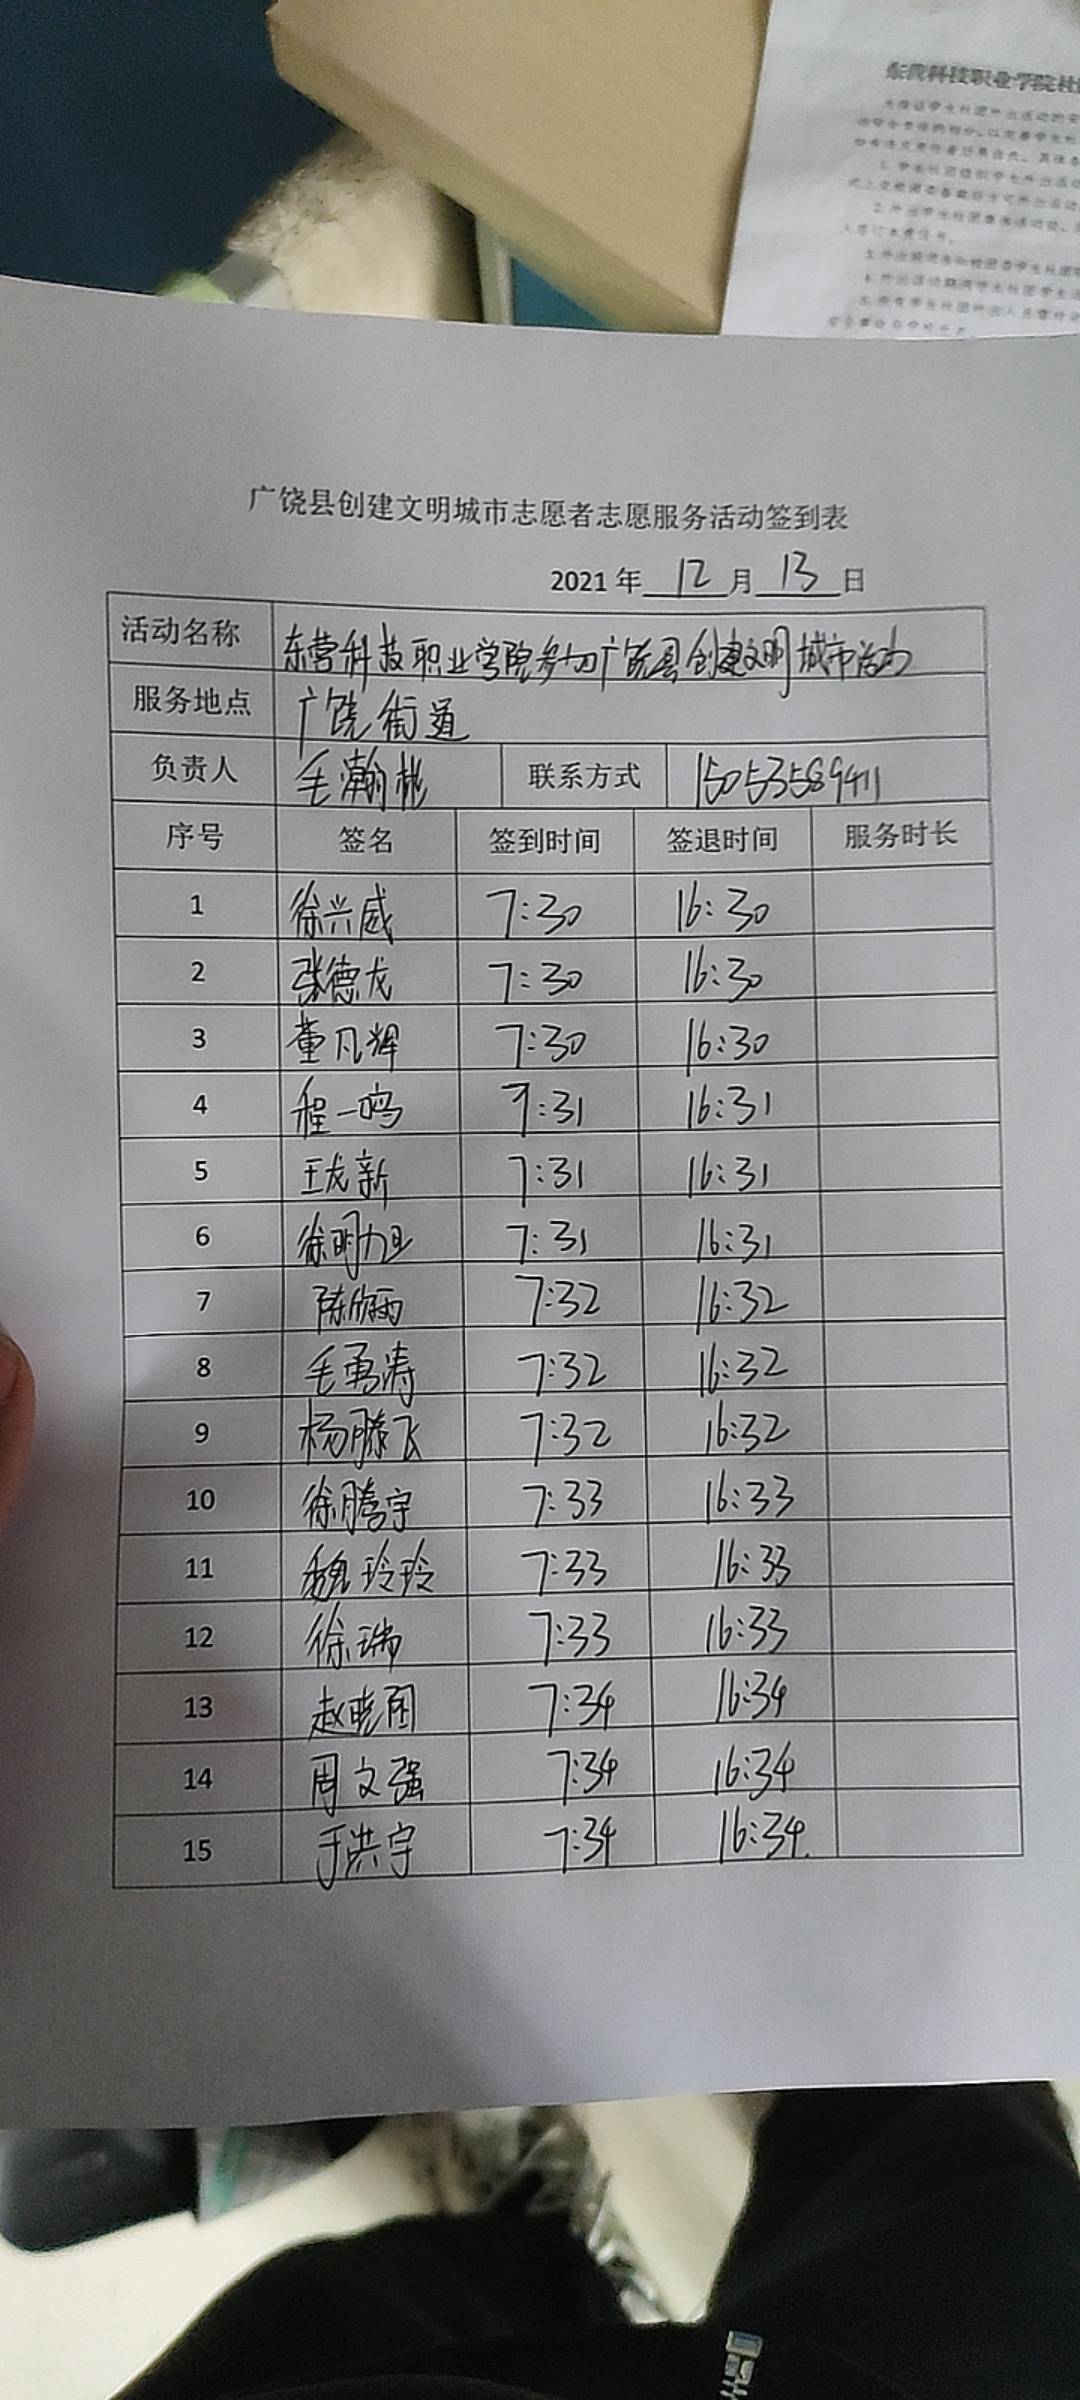 东营科技职业学院社
2. 外出学生社团集体活动前,
人签订本责任书。
广饶县创建文明城市志愿者志愿服务活动签到表
2021 年 12 月 13 日
活动名称 东营科技职业学院参加广饶县创建文明城市活动
服务地点 广饶街道
负责人 毛瀚彬 联系方式 15053589411
序号 签名 签到时间 签退时间 服务时长
1 徐兴威 7:30 16:30
2 张德龙 7:30 16:30
3 董凡辉 7:30 16:30
4 程一鸣 7:31 16:31
5 王龙新 7:31 16:31
6 徐明旭 7:31 16:31
7 陈欣雨 7:32 16:32
8 毛勇涛 7:32 16:32
9 杨滕飞 7:32 16:32
10 徐腾宇 7:33 16:33
11 魏玲玲 7:33 16:33
12 徐瑞 7:33 16:33
13 赵晓雨 7:34 16:34
14 周文强 7:34 16:34
15 于洪宇 7:34 16:34